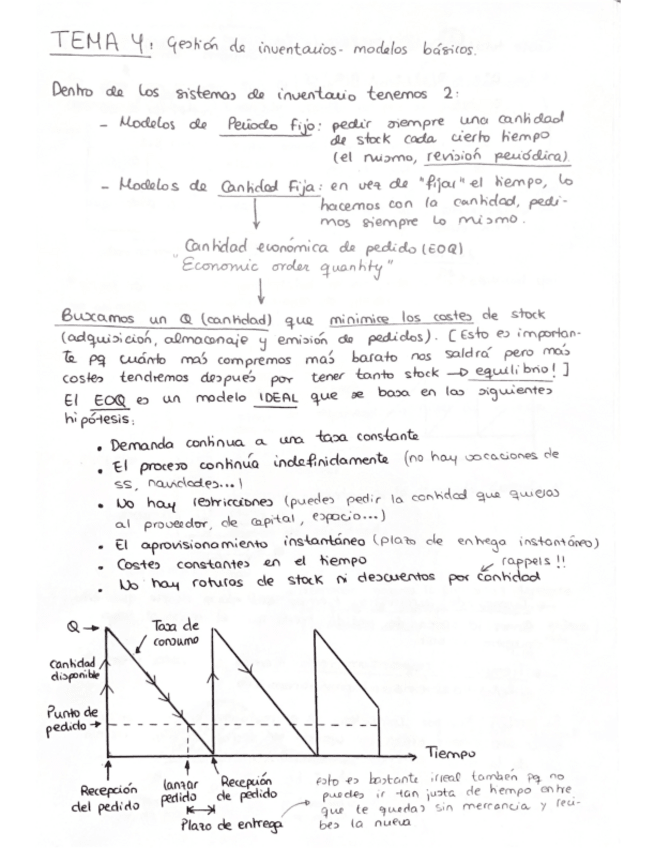 TEMA 4: Gestión de inventarios- modelos básicos.
Dentro de los sistemas de inventario tenemos 2:
- Modelos de Periodo Fijo: pedir siempre una cantidad
de stock cada cierto tiempo
(el mismo, revisión periódica)
- Modelos de Cantidad Fija: en vez de "fijar" el tiempo, lo
hacemos con la cantidad, pedi-
mos siempre lo mismo.
Cantidad económica de pedido (EOQ)
"Economic order quantity"
Buscamos un Q (cantidad) que minimice los costes de stock
(adquisición, almacenaje y emisión de pedidos). [Esto es importan-
te pq cuánto más compremos más barato nos saldrá pero más
costes tendremos después por tener tanto stock → equilibrio! ]
El EOQ es un modelo IDEAL que se basa en las siguientes
hipótesis:
• Demanda continua a una tasa constante
• El proceso continúa indefinidamente (no hay vacaciones de
ss, navidades...)
• No hay restricciones (puedes pedir la cantidad que quieras
al proveedor, de capital, espacio...)
• El aprovisionamiento instantáneo (plazo de entrega instantáneo)
• Costes constantes en el tiempo
rappels !!
• No hay roturas de stock ni descuentos por cantidad
Q →
Tasa de
consumo
Cantidad
disponible
Punto de
pedido →
Tiempo
Recepción
del pedido
lanzar
pedido
Recepción
de pedido
Plazo de entrega
esto es bastante irreal también pq no
puedes ir tan justa de tiempo entre
que te quedas sin mercancía y reci-
bes la nueva